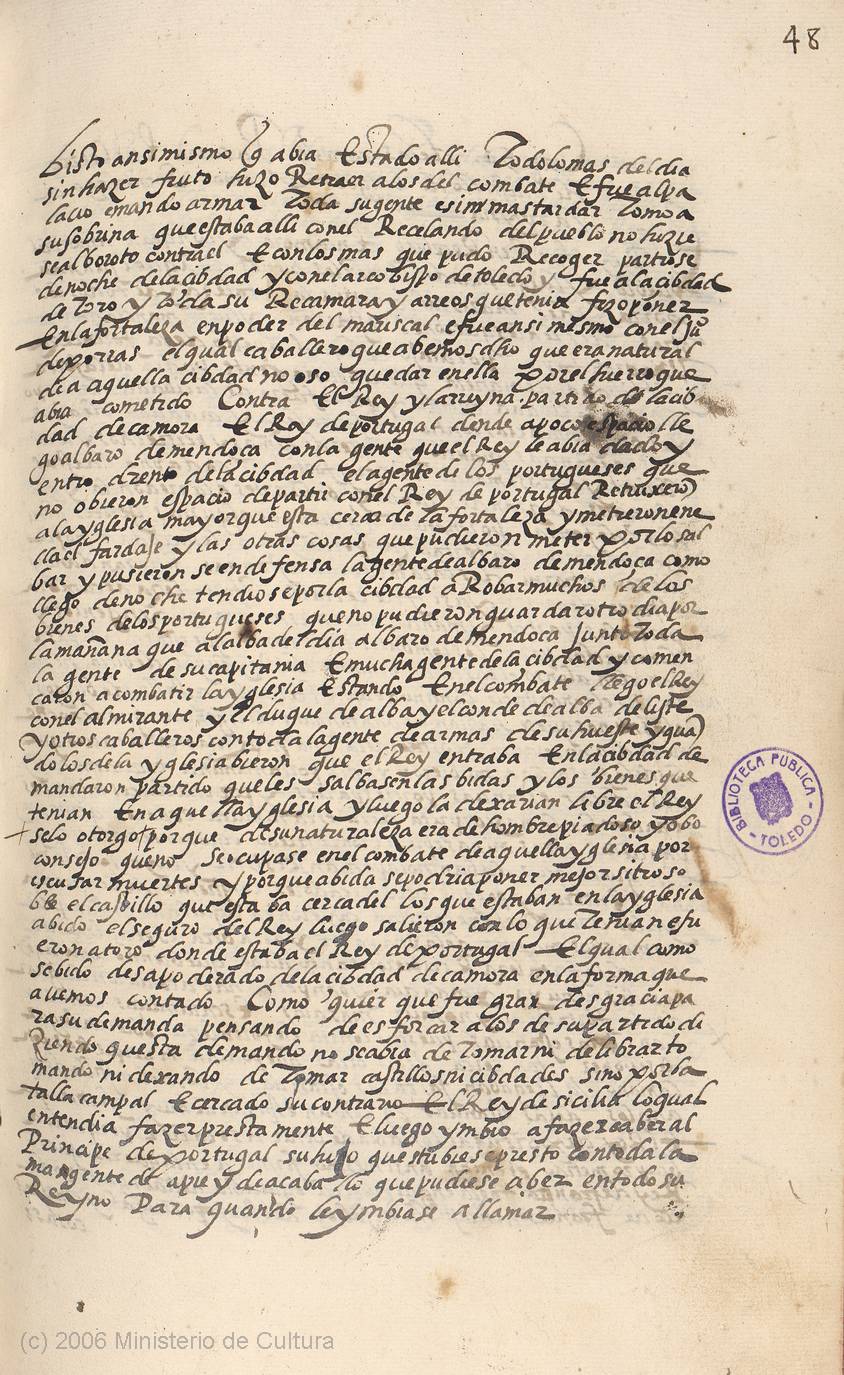 48
bisto ansimismo q̃ abia Estado alli Todo lo mas del dia
sin hazer fruto hizo Retraer a los del combate E fue al pa
lacio e mando armar Toda su gente e sin mas tardar Tomo a
su sobrina que estaba alli con el Recelando del pueblo no hizie
se alboroto contra el E con los mas que pudo Recoger partiose
de noche de la cibdad y con el arcobispo de toledo y fue a la cibdad
de Toro y toda su Recamara y arreos que tenia fizo poner
En la fortaleza en poder del mariscal e fue ansi mesmo con el juº
de porras el qual caballero que abemos dho que era natural
de aquella cibdad no oso quedar en ella por el hierro que
abia cometido Contra El Rey y la rreyna partido de la cib
dad de camora El Rey de portugal dende a poco espacio lle
go albaro de mendoca con la gente que el Rey le abia dado y
entro dentro de la cibdad e la gente de los portugueses que
no obieron espacio de partir con el Rey de portugal Retruxerõ
a la yglesia mayor que esta cerca de la fortaleza y metieron en e
lla el fardaje y las otras cosas que pudieron meter por lo sal
bar y pusieron se en defensa la gente de albaro de mendoca como
llego de noche tendiose por la cibdad a Robar muchos de los
bienes de los portugueses que no pudieron guardar otro dia por
la mañana que al alba del dia albaro de mendoca junto Toda
la gente de su capitania E mucha gente de la cibdad y comen
caron a combatir la yglesia Estando En el combate llego el Rey
con el almirante y El duque de alba y el conde de alba de liste
y otros caballeros con toda la gente de armas de su hueste y quã
do los de la yglesia bieron que el Rey entraba En la cibdad de
mandaron partido que les salbasen las bidas y los bienes que
tenian En aquella yglesia y luego la dexarian libre el Rey
se lo otorgo porque de su naturaleza era de hombre piadoso y obo
consejo que no se ocupase en el combate de aquella yglesia por
escusar muertes y porque abida se podria poner mejor sitio so
bre el castillo que estaba cerca del los que estaban en la yglesia
abido el seguro del Rey luego salieron con lo que Tenian e fu
eron a toro donde estaba el Rey de portugal El qual como
se bido desapoderado de la cibdad de camora en la forma que
avemos contado Como quier que fue gran desgracia pa
ra su demanda pensando de esforcar a los de su partido di
ziendo questa demanda no se abia de Tomar ni de librar to
mando ni dexando de Tomar castillos ni cibdades sino por ba
talla campal E cercado su contrario El Rey de sicilia lo qual
entendia fazer prestamente E luego ymbio a fazer saber al
Principe de portugal su hijo que estubiese presto con toda la
mas gente de a pie y de acaballo que pudiese aber en todo su
Reyno Para quando le ymbiase a llamar
BIBLIOTECA PÚBLICA
TOLEDO
(c) 2006 Ministerio de Cultura